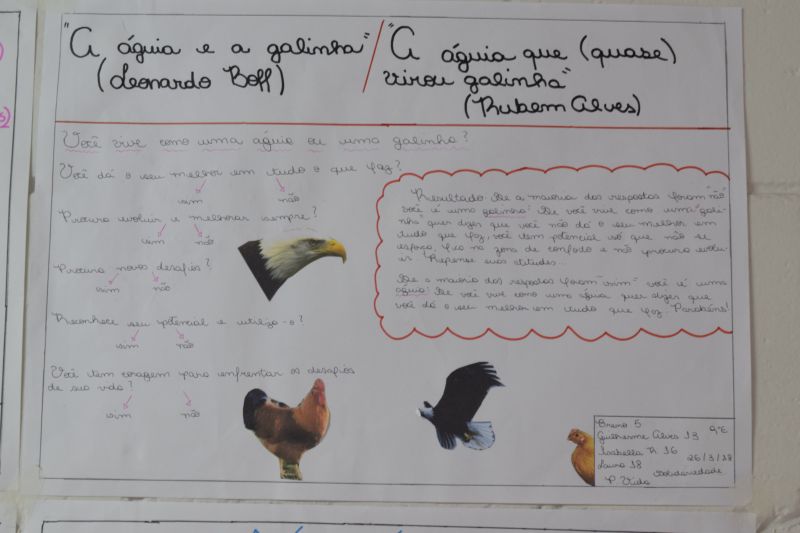 "A águia e a galinha"
(Leonardo Boff)
"A águia que (quase)
virou galinha"
(Rubem Alves)
Você vive como uma águia ou uma galinha?
Você dá o seu melhor em tudo o que faz?
sim não
Procura evoluir e melhorar sempre?
sim não
Procura novos desafios?
sim não
Reconhece seu potencial e utiliza-o?
sim não
Você tem coragem para enfrentar os desafios
de sua vida?
sim não
Resultado: Se a maioria das respostas foram "não"
você é uma galinha! Se você vive como uma "gali-
nha" quer dizer que você não dá o seu melhor em
tudo que faz, você tem potencial só que não se
esforça, fica na zona de conforto e não procura evolu-
ir. Repense suas atitudes...
Se a maioria das respostas foram "sim" você é uma
águia! Se você vive como uma águia quer dizer que
você dá o seu melhor em tudo que faz. Parabéns!
Breno 5
Guilherme Alves 13 9°E
Isabella R. 16
Laura 18 26/3/18
Solidariedade
P. Vida